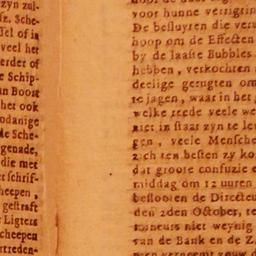 zyn zul-
Sche-
of in
veel het
erder of
Schip-
an Boost
het ook
odanige
de Sche-
genade,
die met
er schrif-
heepen,
gestraft
Ligters
cheepen
rtreden-
voor hunne verrigtin
De besluyren die veru
hoop om de Effecten
by de laatste Bubbles
hebben, verkochten
deelige gerugten om
te jagen, waar in het
welke reede veele we
niet in staat zyn te le
gen, veele Mensche
zich ten besten zy ko
dat groote confuzie e
middag om 12 uuren
beslooten de Directeu
den 2den October, te
mineurs niet weynig
van de Bank en de Z.